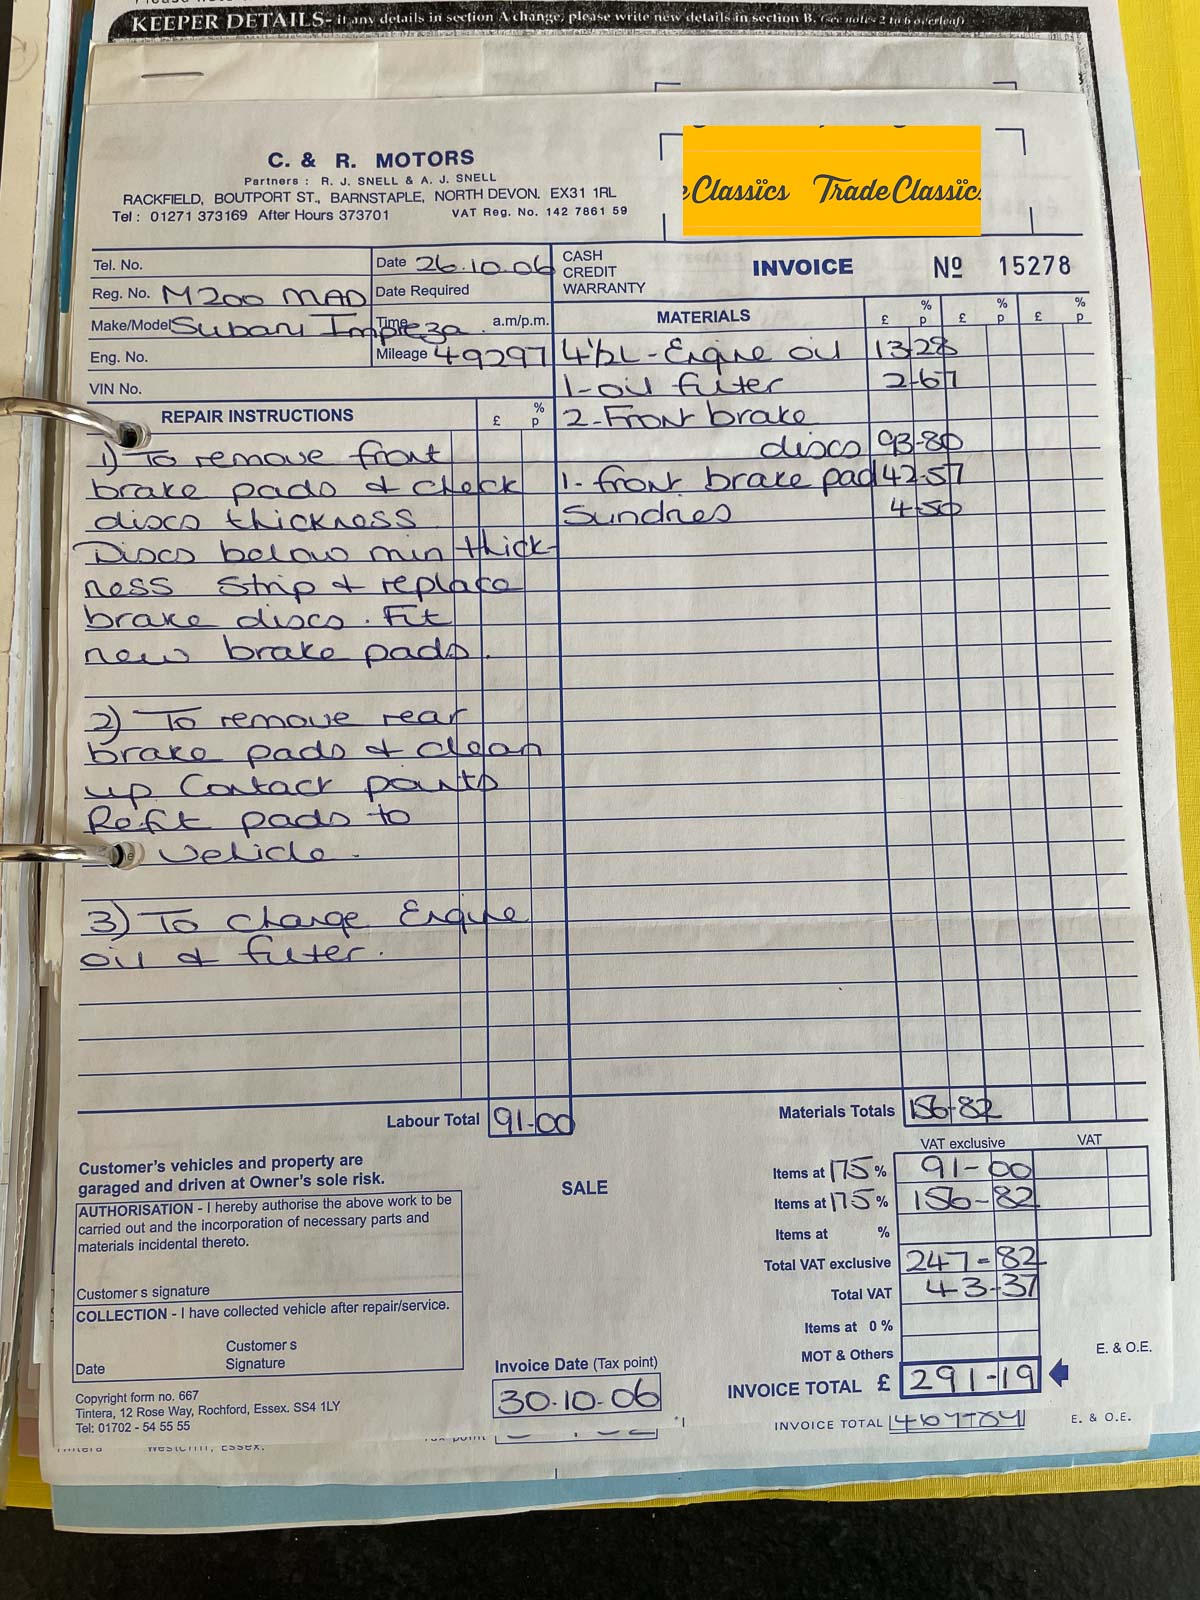 KEEPER DETAILS- if any details in section A change, please write new details in section B. (see notes 2 to 6 overleaf)
C. & R. MOTORS
Partners : R. J. SNELL & A. J. SNELL
RACKFIELD, BOUTPORT ST., BARNSTAPLE, NORTH DEVON. EX31 1RL
Tel : 01271 373169 After Hours 373701 VAT Reg. No. 142 7861 59
Classics TradeClassic
Tel. No. Date 26.10.06
Reg. No. M200 MAD Date Required
Make/Model Subaru Impreza Time a.m/p.m.
Eng. No. Mileage 49297
VIN No.
CASH
CREDIT
WARRANTY
INVOICE Nº 15278
REPAIR INSTRUCTIONS £ % p
1) To remove front
brake pads & check
discs thickness
Discs below min thick-
ness Strip & replace
brake discs. Fit
new brake pads.
2) To remove rear
brake pads & clean
up Contact points
Refit pads to
vehicle.
3) To change Engine
oil & filter.
Labour Total 91-00
MATERIALS £ % p £ % p £ % p
4½L - Engine oil 13-28
1-oil filter 2-67
2-Front brake
discs 93-80
1-front brake pad 42-57
Sundries 4-50
Materials Totals 156-82
VAT exclusive VAT
Items at 17.5 % 91-00
Items at 17.5 % 156-82
Items at %
Total VAT exclusive 247-82
Total VAT 43-37
Items at 0 %
MOT & Others
INVOICE TOTAL £ 291-19
E. & O.E.
Customer's vehicles and property are
garaged and driven at Owner's sole risk.
SALE
AUTHORISATION - I hereby authorise the above work to be
carried out and the incorporation of necessary parts and
materials incidental thereto.
Customer s signature
COLLECTION - I have collected vehicle after repair/service.
Customer s
Date Signature
Invoice Date (Tax point)
30.10.06
Copyright form no. 667
Tintera, 12 Rose Way, Rochford, Essex. SS4 1LY
Tel: 01702 - 54 55 55
INVOICE TOTAL E. & O.E.